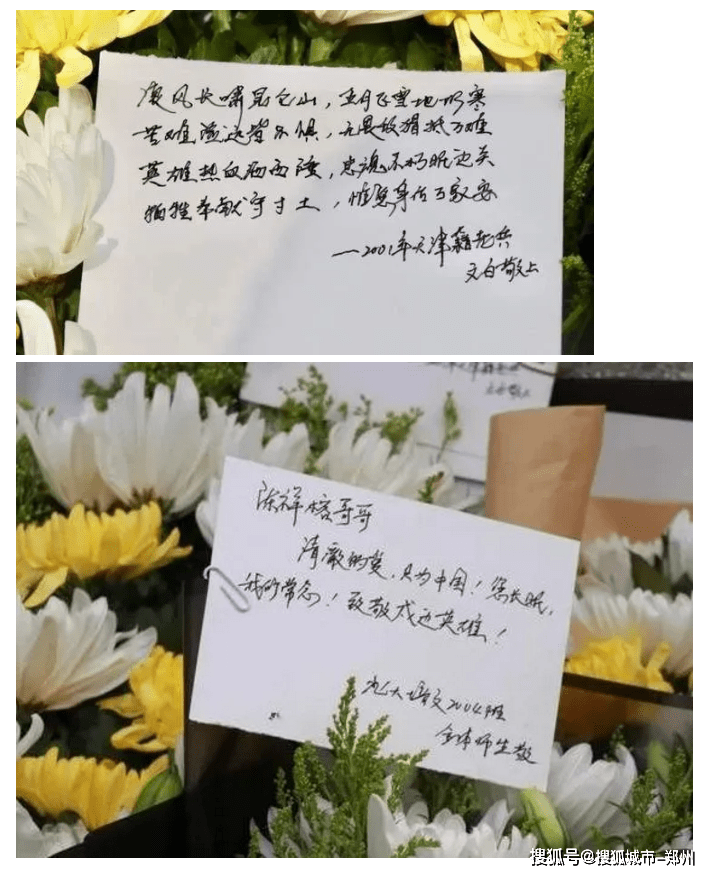 厦风长啸昆仑山，五月飞雪地仍寒
苦难艰远皆不惧，无畏敌猖抵万难
英雄热血洒西陲，忠魂不朽眠边关
牺牲奉献守寸土，惟愿身佑万家安
—2001年天津籍老兵
文白敬上
敬上
陈祥榕哥哥
清澈的爱，只为中国！您长眠，
我的常念！致敬戍边英雄！
2004班
全体师生敬
搜狐号@搜狐城市-郑州